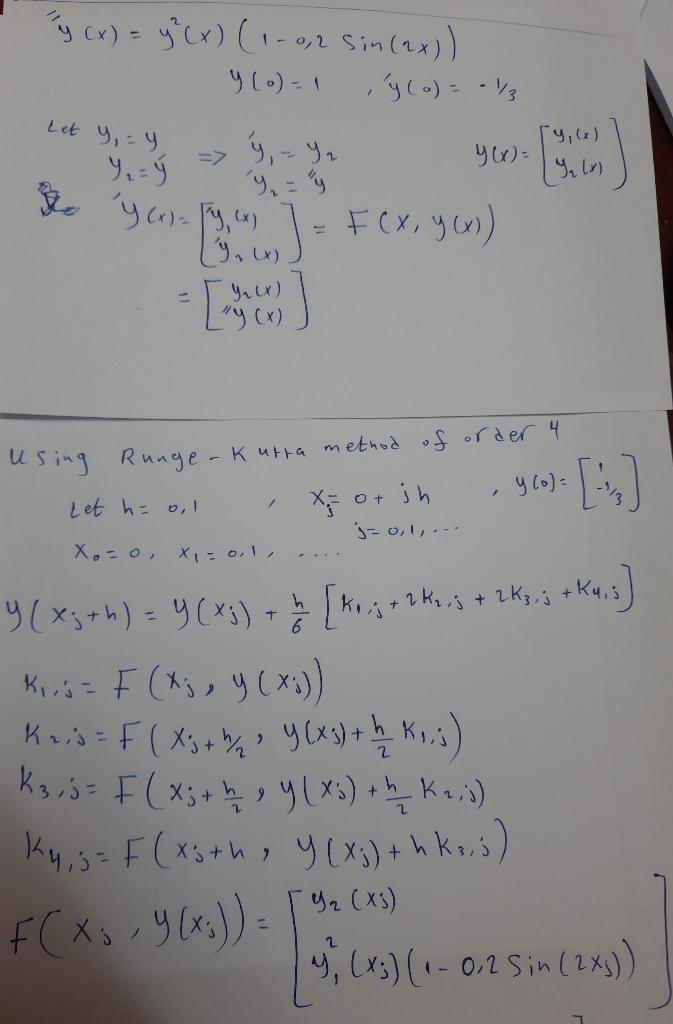 ″y(x) = y²(x) (1-0,2 Sin(2x))
y(0)=1 , ′y(0) = -1/3
Let y₁ = y
y₂ = ý => ′y₁ = y₂
′y₂ = ″y
y(x) = [y₁(x)
y₂(x)]
′y(x) = [′y₁(x)
′y₂(x)] = F(x, y(x))
= [y₂(x)
″y(x)]
Using Runge-Kutta method of order 4
Let h = 0,1 , xⱼ = 0 + jh , y(0) = [1
-1/3]
j = 0,1,...
x₀ = 0, x₁ = 0,1, ....
y(xⱼ+h) = y(xⱼ) + h/6 [K₁,ⱼ + 2K₂,ⱼ + 2K₃,ⱼ + K₄,ⱼ]
K₁,ⱼ = F(xⱼ, y(xⱼ))
K₂,ⱼ = F(xⱼ+h/2, y(xⱼ)+h/2 K₁,ⱼ)
K₃,ⱼ = F(xⱼ+h/2, y(xⱼ)+h/2 K₂,ⱼ)
K₄,ⱼ = F(xⱼ+h, y(xⱼ)+hK₃,ⱼ)
F(xⱼ, y(xⱼ)) = [y₂(xⱼ)
y₁²(xⱼ)(1-0,2 Sin(2xⱼ))]